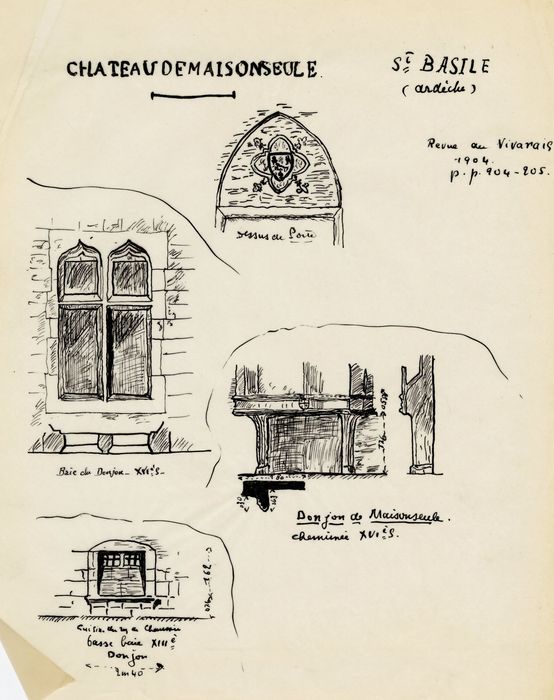 CHATEAU DE MAISONSEULE.
St BASILE
(ardèche)
Revue du Vivarais
1904.
p.p. 204-205.
Dessus de Porte
Baie du Donjon - XVIe S -
Donjon de Maisonseule.
cheminée XVIe S.
basse baie XIIIe
Donjon
2m40